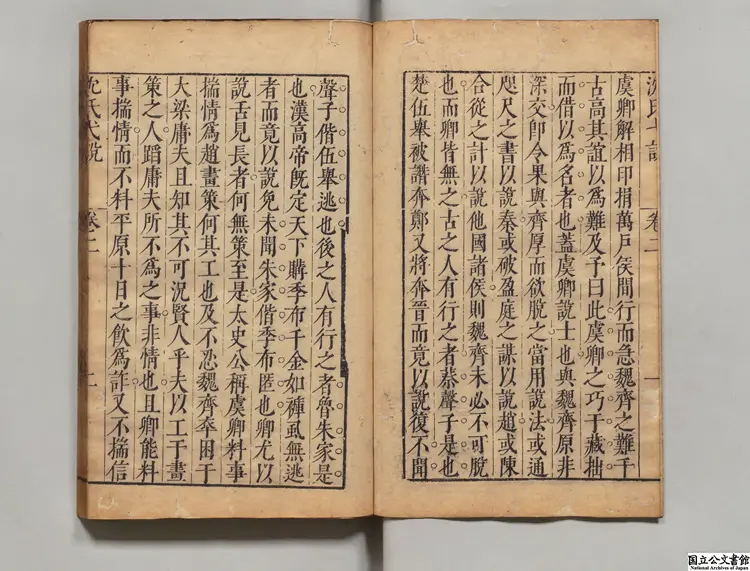 虞卿解相印捐萬戸矦間行而急魏齊之難千
古高其誼以為難及予曰此虞卿之巧于藏拙
而借以為名者也蓋虞卿說士也與魏齊原非
深交卽令果與齊厚而欲脫之當用說法或通
咫尺之書以說秦或破盈庭之謀以說趙或陳
合從之計以說他國諸侯則魏齊未必不可脫
也而卿皆無之古之人有行之者蔡聲子是也
楚伍舉被譖奔鄭又將奔晉而竟以說復不聞
聲子偕伍舉逃也後之人有行之者魯朱家是
也漢高帝旣定天下購季布千金如褲虱無逃
者而竟以說免未聞朱家偕季布匿也卿尤以
說舌見長者何無策至是太史公稱虞卿料事
揣情為趙畫策何其工也及不忍魏齊卒困于
大梁庸夫且知其不可況賢人乎夫以工于畫
策之人蹈庸夫所不為之事非情也且卿能料
事揣情而不料平原十日之飲為詐又不揣信
沈氏弋說 卷二 一
沈氏弋說 卷二
国立公文書館
National Archives of Japan